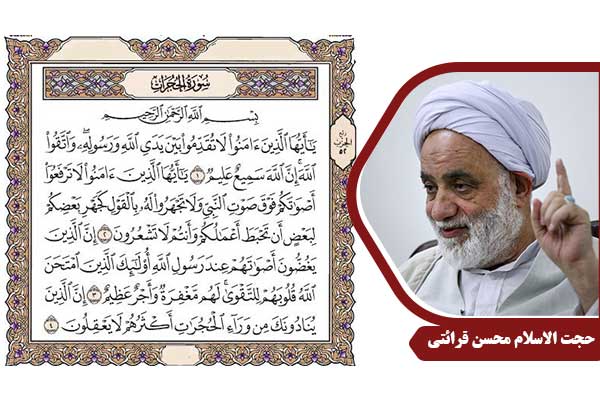 سُورَةُ الحُجُرَاتِ
بِسْمِ اللَّهِ الرَّحْمَٰنِ الرَّحِيمِ
يَٰٓأَيُّهَا الَّذِينَ ءَامَنُوا۟ لَا تُقَدِّمُوا۟ بَيْنَ يَدَىِ اللَّهِ وَرَسُولِهِۦ ۖ وَاتَّقُوا۟
اللَّهَ ۚ إِنَّ اللَّهَ سَمِيعٌ عَلِيمٌ ١ يَٰٓأَيُّهَا الَّذِينَ ءَامَنُوا۟ لَا تَرْفَعُوٓا۟
أَصْوَٰتَكُمْ فَوْقَ صَوْتِ النَّبِىِّ وَلَا تَجْهَرُوا۟ لَهُۥ بِالْقَوْلِ كَجَهْرِ بَعْضِكُمْ
لِبَعْضٍ أَن تَحْبَطَ أَعْمَٰلُكُمْ وَأَنتُمْ لَا تَشْعُرُونَ ٢ إِنَّ الَّذِينَ
يَغُضُّونَ أَصْوَٰتَهُمْ عِندَ رَسُولِ اللَّهِ أُو۟لَٰٓئِكَ الَّذِينَ امْتَحَنَ
اللَّهُ قُلُوبَهُمْ لِلتَّقْوَىٰ ۚ لَهُم مَّغْفِرَةٌ وَأَجْرٌ عَظِيمٌ ٣ إِنَّ الَّذِينَ
يُنَادُونَكَ مِن وَرَآءِ الْحُجُرَٰتِ أَكْثَرُهُمْ لَا يَعْقِلُونَ ٤
الحزب
٥٢
حجت الاسلام محسن قرائتی